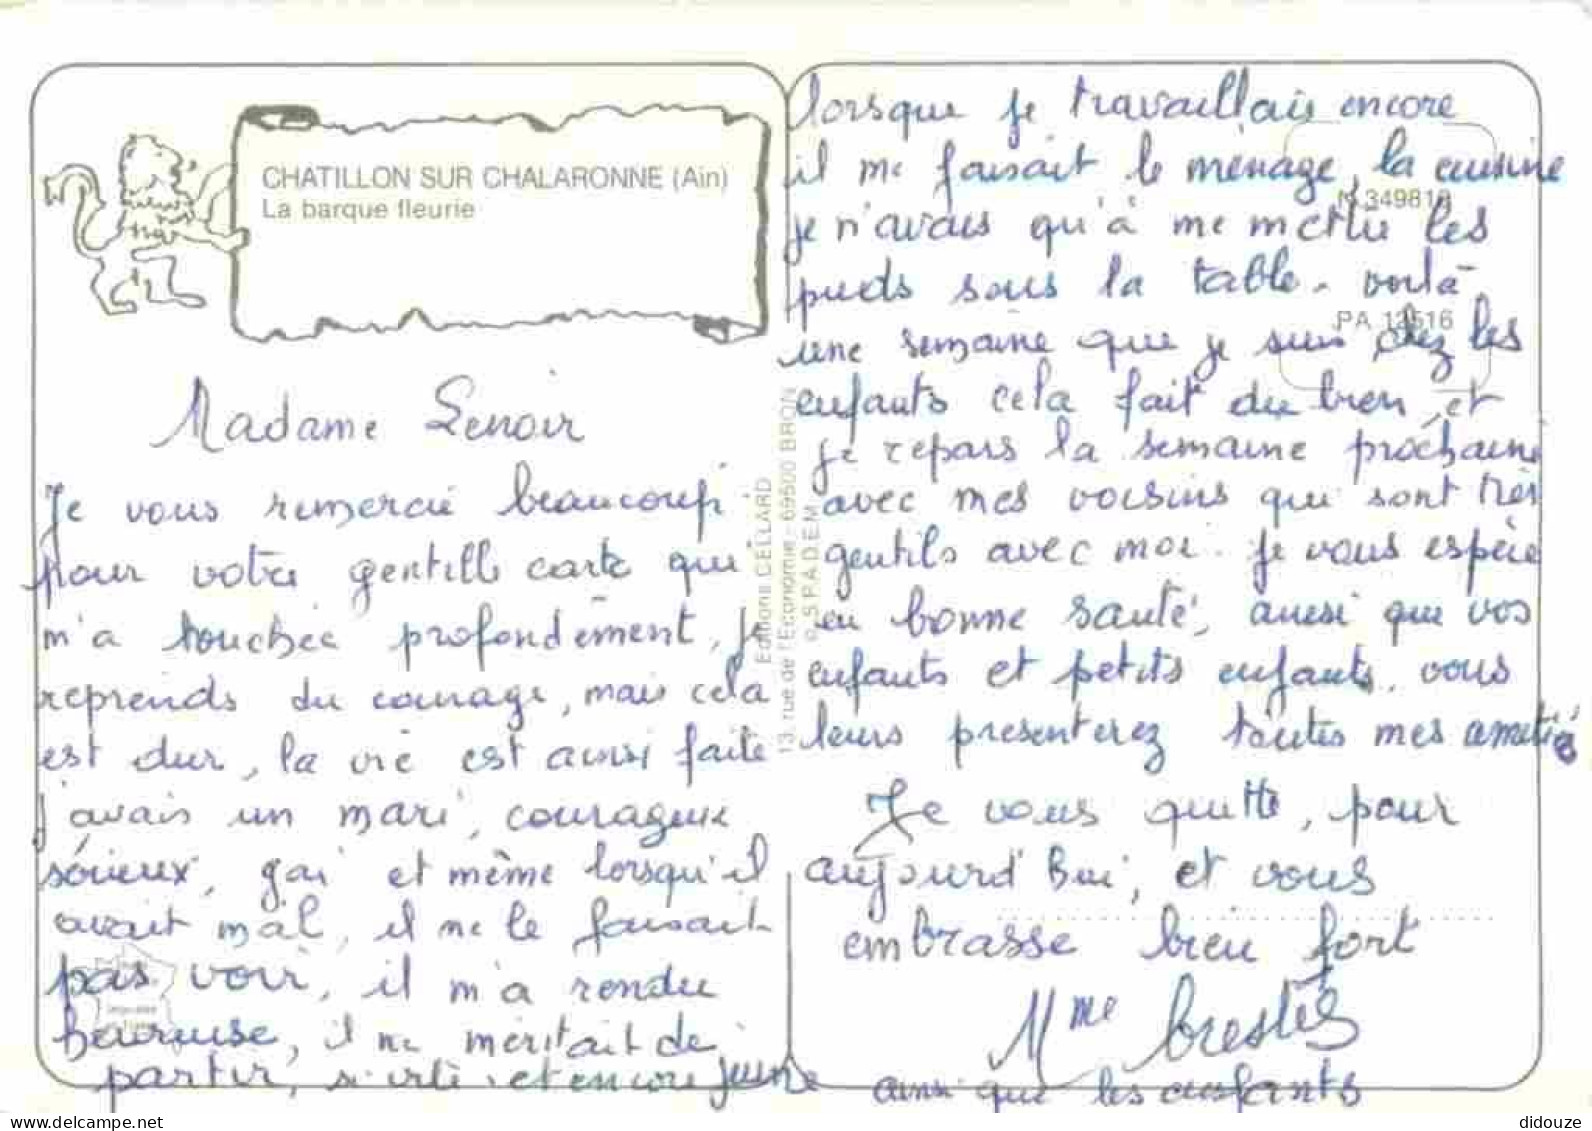 CHATILLON SUR CHALARONNE (Ain)
La barque fleurie
Madame Lenoir
Je vous remercie beaucoup
pour votre gentille carte qui
m'a touchée profondément, je
reprends du courage, mais cela
est dur, la vie est ainsi faite
j'avais un mari, courageux
sérieux, gai et même lorsqu'il
avait mal, il ne le faisait
pas voir, il m'a rendue
heureuse, il ne méritait de
partir, si vite, et encore jeune
Editions CELLARD
13, rue de l'Economie - 69500 BRON
© S.P.A.D.E.M.
lorsque je travaillais encore
il me faisait le ménage, la cuisine
je n'avais qu'à me mettre les
pieds sous la table. voilà
une semaine que je suis chez les
enfants cela fait du bien, et
je repars la semaine prochaine
avec mes voisins qui sont très
gentils avec moi. Je vous espère
en bonne santé, ainsi que vos
enfants et petits enfants, vous
leurs présenterez toutes mes amitiés
Je vous quitte, pour
aujourd'hui, et vous
embrasse bien fort
Mme
ainsi que les enfants
N 349818
PA 12516
didouze